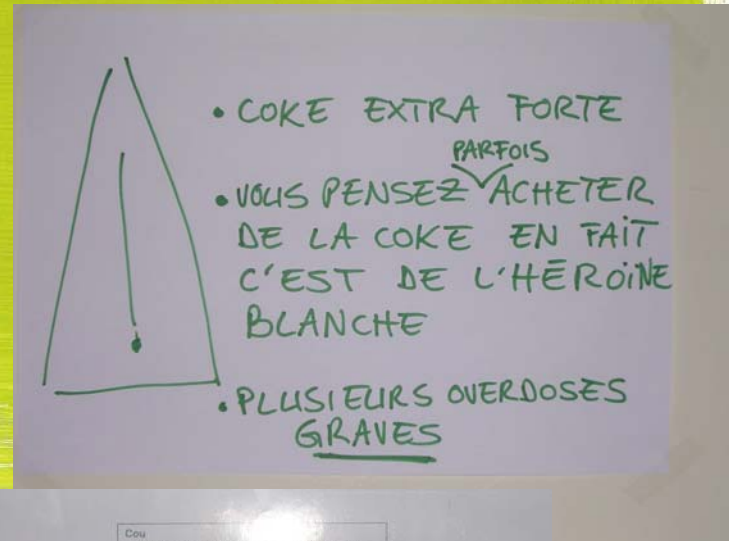 • COKE EXTRA FORTE
PARFOIS
• VOUS PENSEZ ACHETER
DE LA COKE EN FAIT
C'EST DE L'HÉROINE
BLANCHE
• PLUSIEURS OVERDOSES
GRAVES
Cou